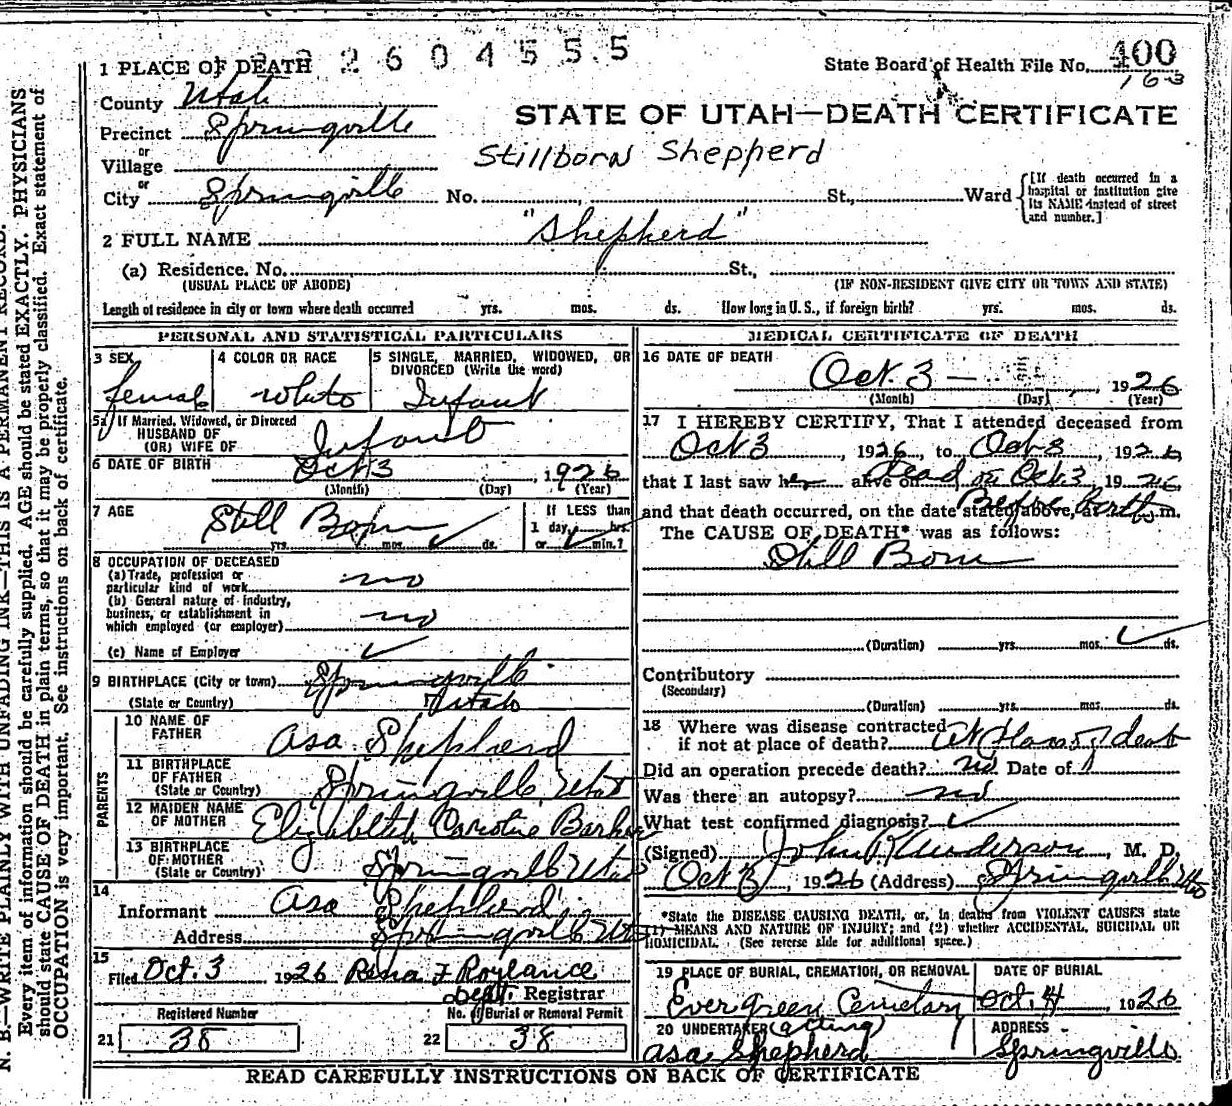 2604555
1 PLACE OF DEATH
State Board of Health File No. 400
163
County Utah
STATE OF UTAH—DEATH CERTIFICATE
Precinct Springville
Stillborn Shepherd
or
Village
or
City Springville No. St., Ward
[If death occurred in a hospital or institution give its NAME instead of street and number.]
2 FULL NAME "Shepherd"
(a) Residence. No. St.,
(USUAL PLACE OF ABODE) (IF NON-RESIDENT GIVE CITY OR TOWN AND STATE)
Length of residence in city or town where death occurred yrs. mos. ds. How long in U. S., if foreign birth? yrs. mos. ds.
PERSONAL AND STATISTICAL PARTICULARS
3 SEX 4 COLOR OR RACE 5 SINGLE, MARRIED, WIDOWED, OR DIVORCED (Write the word)
female white Infant
5a If Married, Widowed, or Divorced
HUSBAND OF
(OR) WIFE OF Infant
6 DATE OF BIRTH Oct 3, 1926
(Month) (Day) (Year)
7 AGE Still Born
yrs. mos. ds.
If LESS than
1 day, hrs.
or min.?
8 OCCUPATION OF DECEASED
(a) Trade, profession or
particular kind of work no
(b) General nature of industry,
business, or establishment in
which employed (or employer) no
(c) Name of Employer
9 BIRTHPLACE (City or town) Springville
(State or Country) Utah
PARENTS
10 NAME OF
FATHER Asa Shepherd
11 BIRTHPLACE
OF FATHER
(State or Country) Springville, Utah
12 MAIDEN NAME
OF MOTHER Elizabeth Caroline Barker
13 BIRTHPLACE
OF MOTHER
(State or Country) Springville Utah
14
Informant Asa Shepherd
Address Springville Utah
15
Filed Oct. 3 1926 Rena F Roylance
Dept. Registrar
Registered Number No. of Burial or Removal Permit
21 38 22 38
MEDICAL CERTIFICATE OF DEATH
16 DATE OF DEATH
Oct. 3 — 1926
(Month) (Day) (Year)
17 I HEREBY CERTIFY, That I attended deceased from
Oct 3, 1926, to Oct 3, 1926
that I last saw her alive on dead on Oct 3, 1926
and that death occurred, on the date stated above, at Before birth m.
The CAUSE OF DEATH* was as follows:
Still Born
(Duration) yrs. mos. ds.
Contributory
(Secondary)
(Duration) yrs. mos. ds.
18 Where was disease contracted
if not at place of death? At
Did an operation precede death? no Date of
Was there an autopsy? no
What test confirmed diagnosis?
(Signed) John R Anderson, M. D.
Oct 3, 1926 (Address) Springville Utah
*State the DISEASE CAUSING DEATH, or, in deaths from VIOLENT CAUSES state
(1) MEANS AND NATURE OF INJURY; and (2) whether ACCIDENTAL, SUICIDAL OR
HOMICIDAL. (See reverse side for additional space.)
19 PLACE OF BURIAL, CREMATION, OR REMOVAL DATE OF BURIAL
Evergreen Cemetary Oct. 4, 1926
20 UNDERTAKER (acting) ADDRESS
Asa Shepherd Springville
READ CAREFULLY INSTRUCTIONS ON BACK OF CERTIFICATE
N. B.—WRITE PLAINLY WITH UNFADING INK—THIS IS A PERMANENT RECORD.
Every item of information should be carefully supplied. AGE should be stated EXACTLY. PHYSICIANS
should state CAUSE OF DEATH in plain terms, so that it may be properly classified. Exact statement of
OCCUPATION is very important. See instructions on back of certificate.